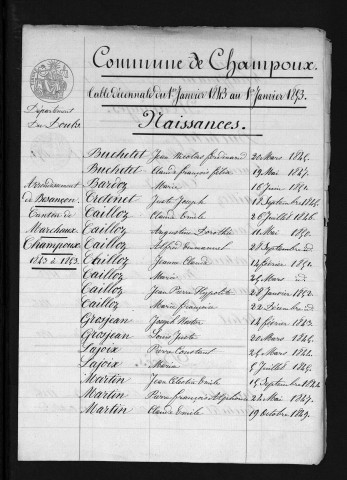 Commune de Champoux.
Table Décennale du 1er Janvier 1843 au 1er Janvier 1853.
Département
du Doubs
Naissances.
Arrondissement
de Besançon
Canton de
Marchaux
Champoux
1843 à 1853
Buchelet Jean Nicolas Ferdinand 20 Mars 1845.
Buchelet Claude françois félix 19 Mai 1847.
Bardoz Marie 16 Juin 1850.
Cretenet Just Joseph 18 Septembre 1844.
Cailloz Claude Emile 26 Juillet 1846.
Cailloz Augustine 11 Mai 1850.
Cailloz Alfred Emmanuel 28 Septembre id
Cailloz Jeanne Claude 14 février 1851.
Cailloz Marie 25 Mars id
Cailloz Jean Pierre Hyppolite 28 Janvier 1852.
Cailloz Marie françoise 22 Décembre id
Grosjean Joseph 14 février 1843.
Grosjean Louis Juste 20 Mars 1845.
Lajoix Pierre Constant 25 Mars 1844.
Lajoix Maria 5 Juillet 1845.
Martin Jean Célestin Emile 15 Septembre 1844.
Martin Pierre françois 24 Mai 1847.
Martin Claude Emile 19 Octobre 1849.